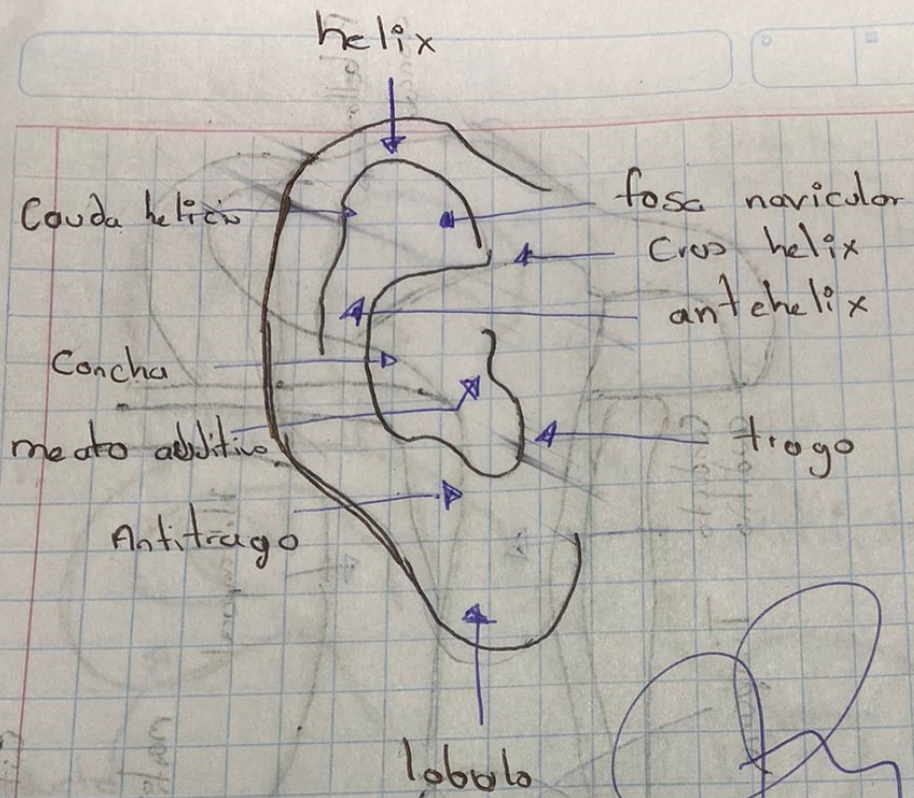 helix
Cauda helicis
fosa navicular
Crus helix
antehelix
Concha
meato auditivo
trago
Antitrago
lobulo